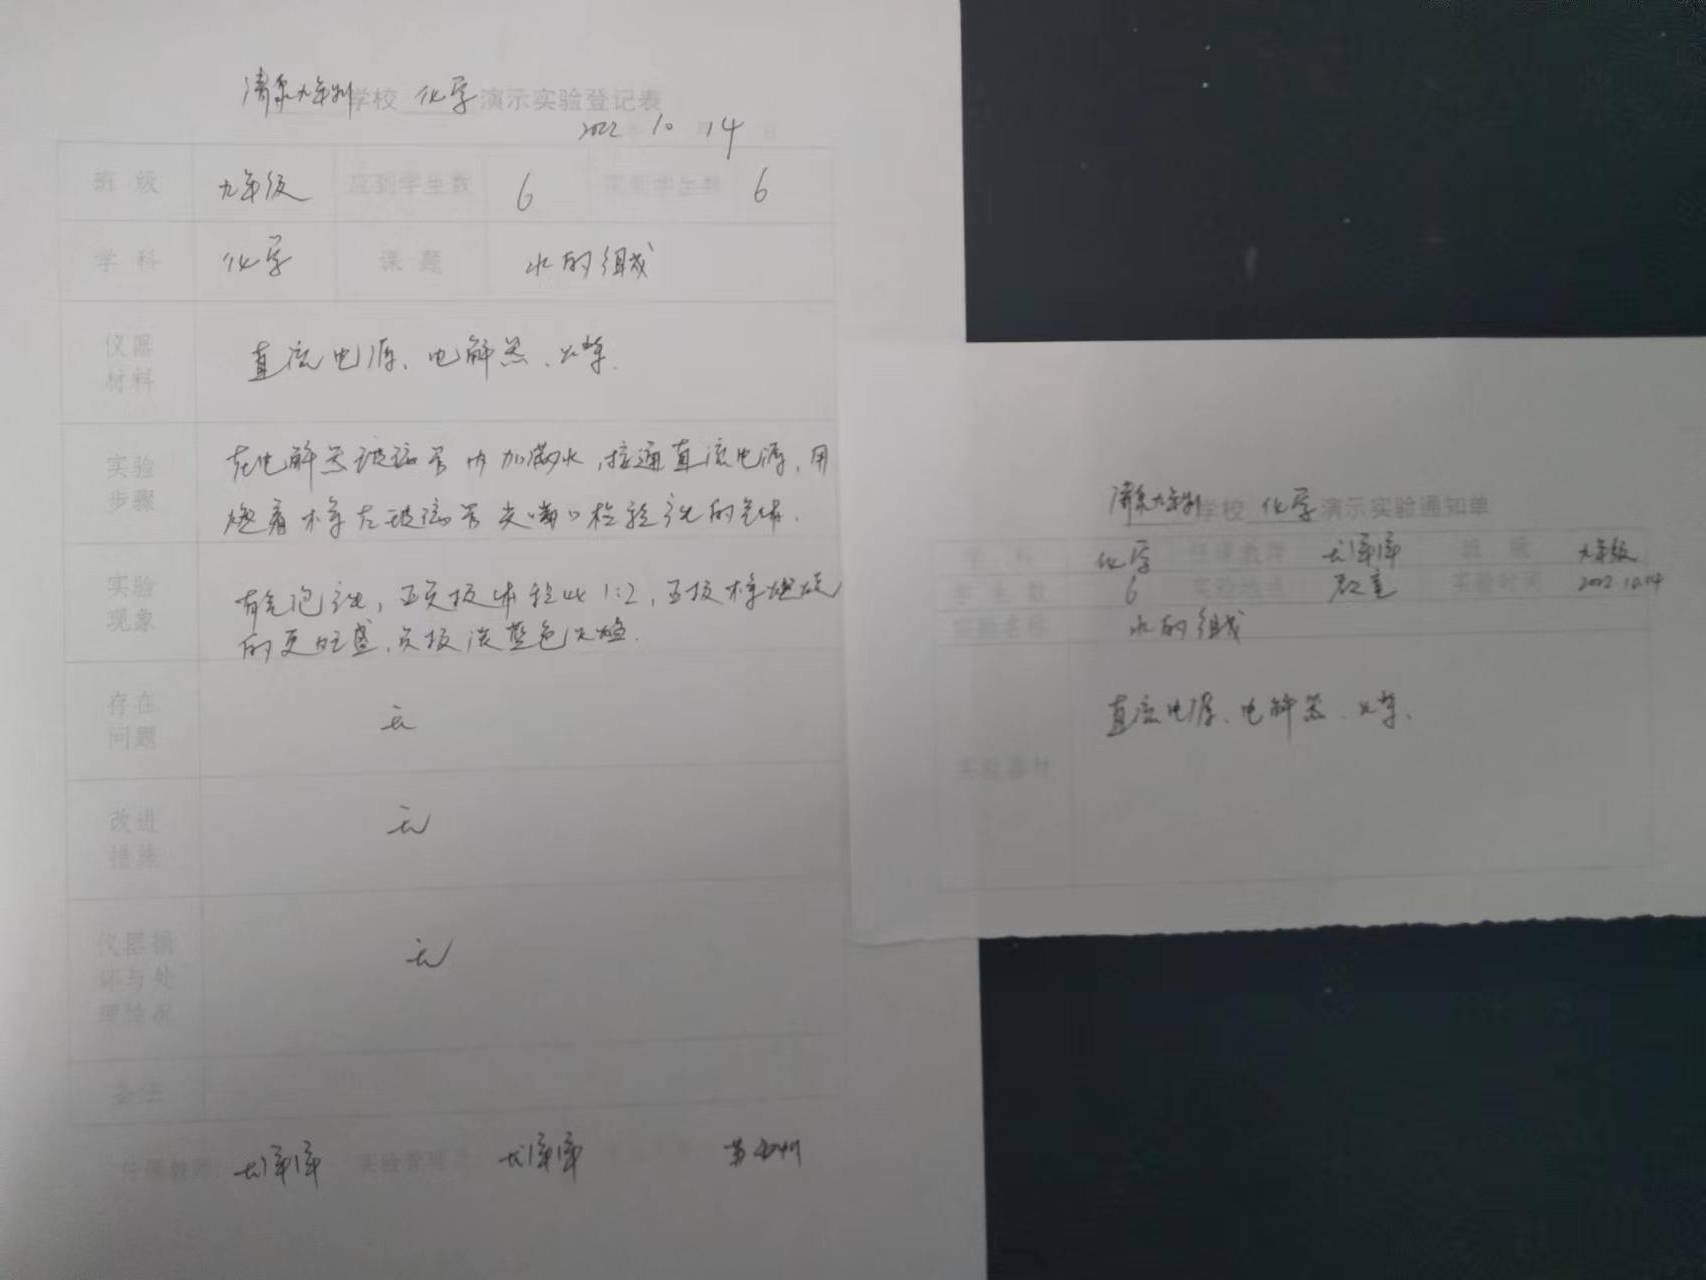 学校 化学 演示实验登记表
2022 10 14 日
班级 九年级 应到学生数 6 实到学生数 6
学科 化学 课题 水的组成
仪器
材料
直流电源、电解器、火柴.
实验
步骤
在电解器玻璃管内加满水,接通直流电源,用
燃着木条在玻璃管尖嘴口检验产生的气体.
实验
现象
有气泡产生,正负极体积比1:2,正极木条燃烧
的更旺盛,负极淡蓝色火焰.
存在
问题
无
改进
措施
无
仪器损
坏与处
理情况
无
备注
任课教师 实验管理员
学校 化学 演示实验通知单
学科 化学 任课教师 班级 九年级
学生数 6 实验地点 教室 实验时间 2022.10.14
实验名称 水的组成
实验器材
直流电源、电解器、火柴.